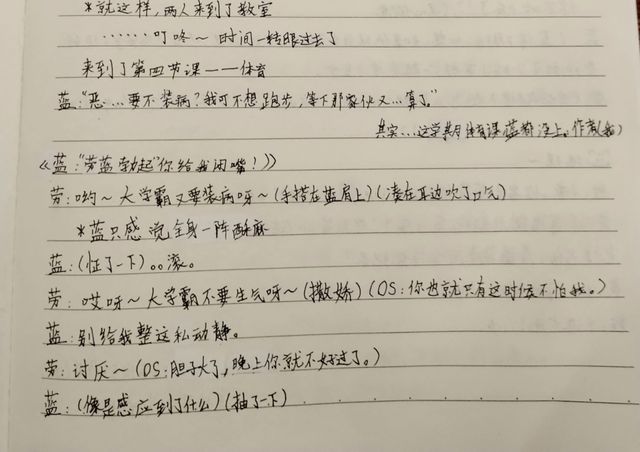 *就这样，两人来到了教室
……叮咚～时间一转眼过去了
来到了第四节课——体育
蓝：“恶…要不装病？我可不想跑步，等下那家伙又…算了”
其实…这学期体育课蓝都没上。作者(我)
《蓝：“劳蓝勃起”你给我闭嘴！》》
劳：哟～大学霸又要装病呀～(手搭在蓝肩上)(凑在耳边吹了口气)
*蓝只感觉全身一阵酥麻
蓝：(怔了一下)。。滚。
劳：哎呀～大学霸不要生气呀～(撒娇)(OS：你也就只有这时候不怕我。)
蓝：别给我整这私动静。
劳：讨厌～(OS：胆子大了，晚上你就不好过了。)
蓝：(像是感应到了什么)(抽了一下)